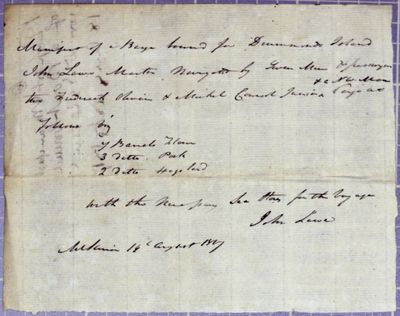 Manifest of a Barge bound for Drummonds Island
John Lowe Master Navigated by Seven Men & passengers
two Frederick Olivier & Michel
follows viz
7 Barrels Flour
3 ditto Pork
2 ditto Hogs lard
with the Necessary Sea Stores for the Voyage
John Lowe
Mackinac 14th August